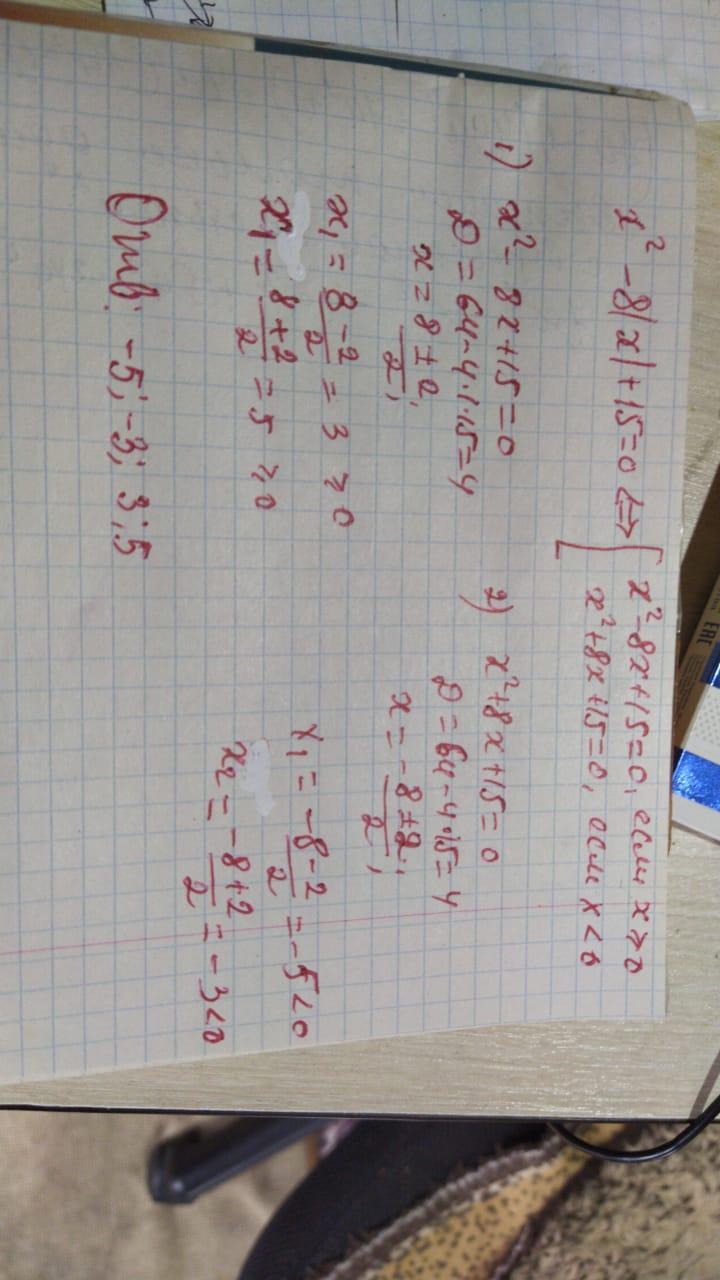 x² - 8|x| + 15 = 0 ⇔ [ x² - 8x + 15 = 0, если x ⩾ 0
x² + 8x + 15 = 0, если x < 0
1) x² - 8x + 15 = 0
D = 64 - 4·1·15 = 4
x = (8 ± 2)/2;
x₁ = (8 - 2)/2 = 3 ⩾ 0
x₁ = (8 + 2)/2 = 5 ⩾ 0
2) x² + 8x + 15 = 0
D = 64 - 4·15 = 4
x = (-8 ± 2)/2;
x₁ = (-8 - 2)/2 = -5 < 0
x₂ = (-8 + 2)/2 = -3 < 0
Отв: -5; -3; 3; 5
EAC